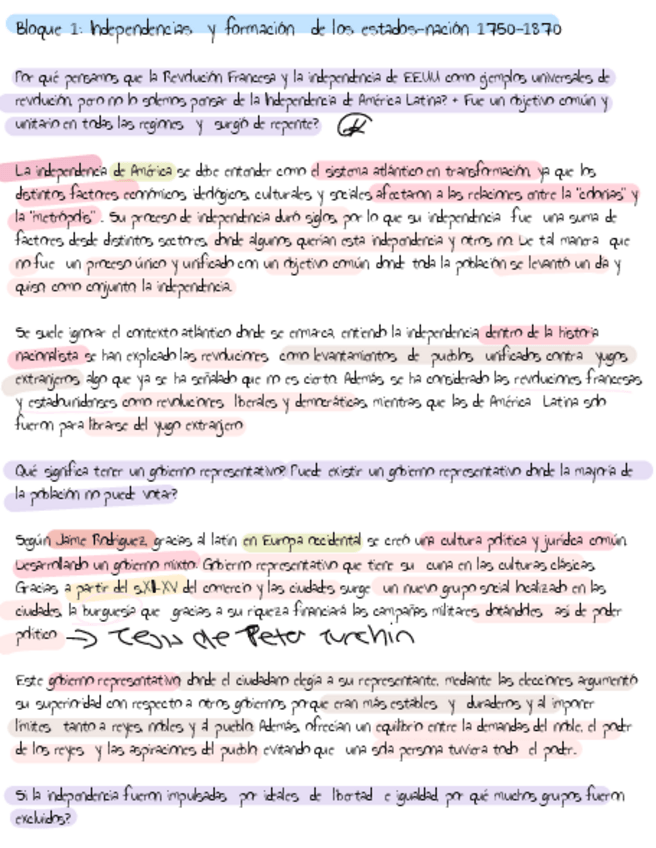 Bloque 1: Independencias y formación de los estados-nación 1750-1870
Por qué pensamos que la Revolución Francesa y la independencia de EEUU como ejemplos universales de
revolución, pero no lo solemos pensar de la Independencia de América Latina? + Fue un objetivo común y
unitario en todas las regiones y surgió de repente?
La independencia de América se debe entender como el sistema atlántico en transformación, ya que los
distintos factores económicos, ideológicos, culturales y sociales afectaron a las relaciones entre la "colonias" y
la "metrópolis". Su proceso de independencia duró siglos, por lo que su independencia fue una suma de
factores desde distintos sectores, donde algunos querían esta independencia y otros no. De tal manera que
no fue un proceso único y unificado con un objetivo común donde toda la población se levantó un día y
quiso como conjunto la independencia.
Se suele ignorar el contexto atlántico donde se enmarca, entiendo la independencia dentro de la historia
nacionalista se han explicado las revoluciones como levantamientos de pueblos unificados contra yugos
extranjeros, algo que ya se ha señalado que no es cierto. Además, se ha considerado las revoluciones francesas
y estadounidenses como revoluciones liberales y democráticas, mientras que las de América Latina solo
fueron para librarse del yugo extranjero
Qué significa tener un gobierno representativo? Puede existir un gobierno representativo donde la mayoría de
la población no puede votar?
Según Jaime Rodríguez, gracias al latín en Europa occidental se creó una cultura política y jurídica común.
Desarrollando un gobierno mixto. Gobierno representativo que tiene su cuna en las culturas clásicas.
Gracias a partir del s.XII-XV del comercio y las ciudades surge un nuevo grupo social localizado en las
ciudades, la burguesía que gracias a su riqueza financiará las campañas militares, dotándoles así de poder
político → Tesis de Peter Turchin
Este gobierno representativo donde el ciudadano elegía a su representante, mediante las elecciones argumentó
su superioridad con respecto a otros gobiernos porque eran más estables y duraderos y al imponer
límites tanto a reyes, nobles y al pueblo. Además, ofrecían un equilibrio entre la demandas del noble, el poder
de los reyes y las aspiraciones del pueblo evitando que una sola persona tuviera todo el poder.
Si la independencia fueron impulsadas por ideales de libertad e igualdad por qué muchos grupos fueron
excluidos?